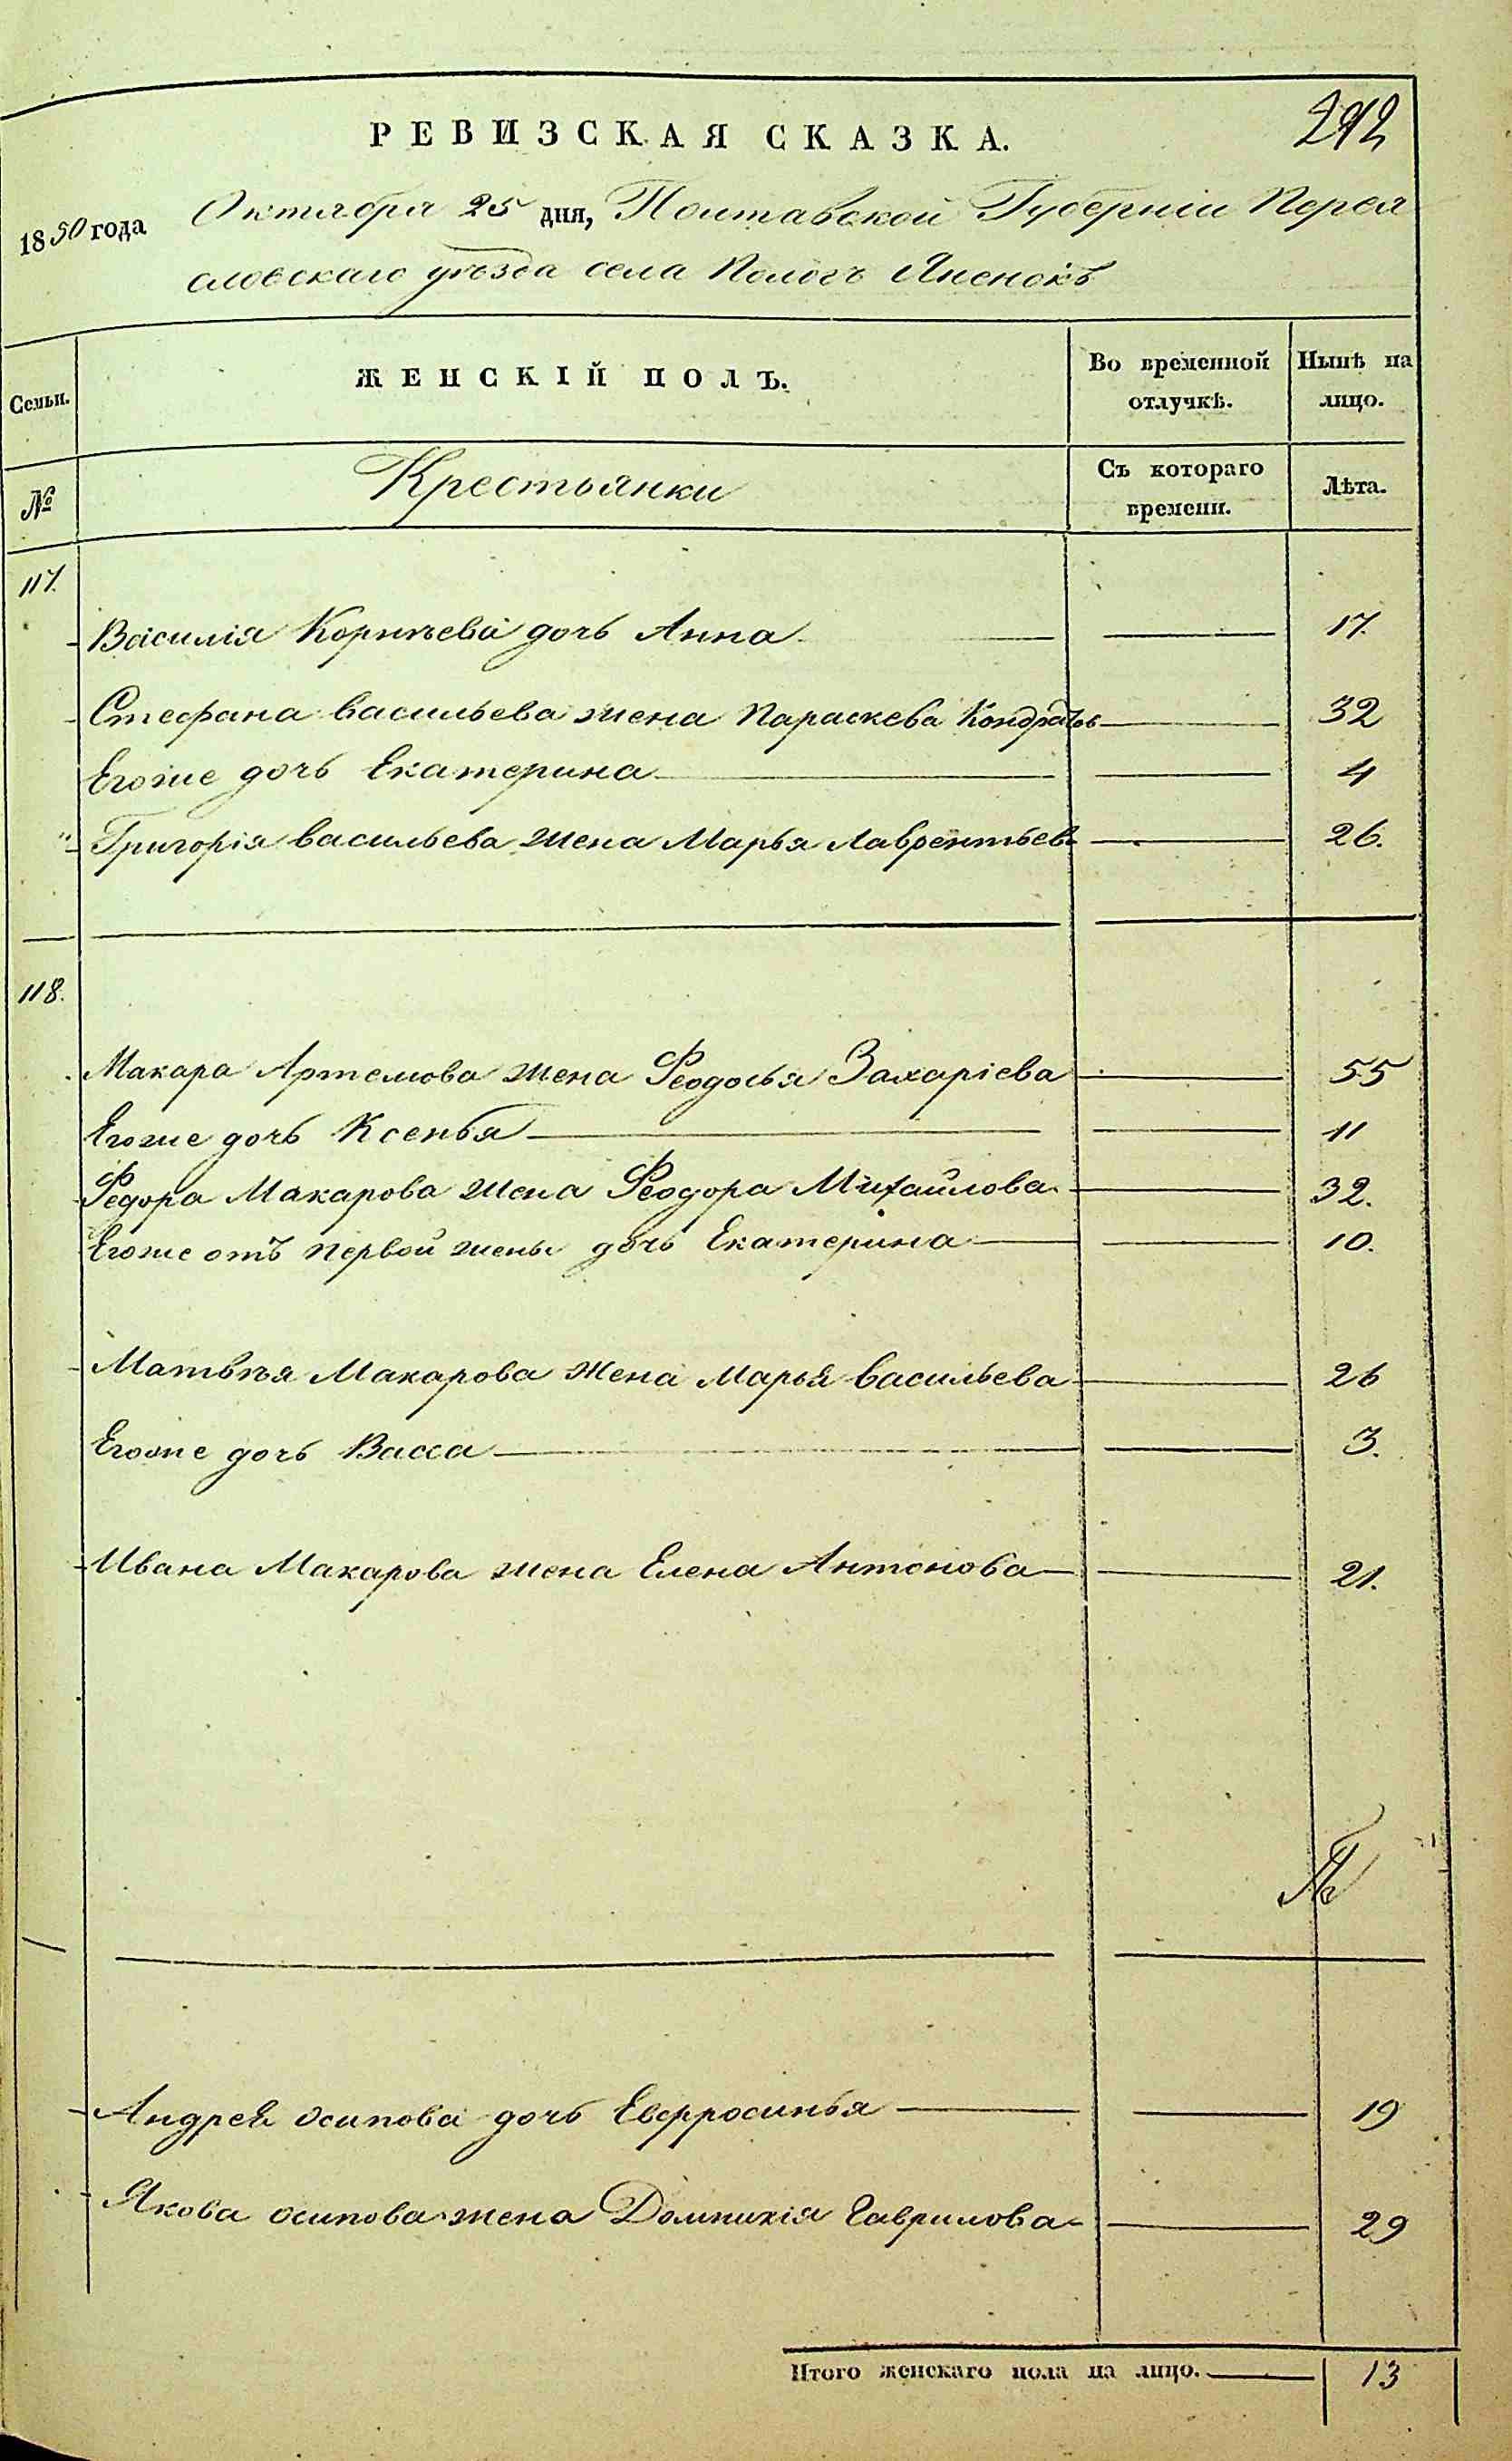 РЕВИЗСКАЯ СКАЗКА.
292
1850 года Октября 25 дня, Полтавской Губерніи Перея
словскаго уѣзда села Пологъ Яненокъ
Семьи.
ЖЕНСКІЙ ПОЛЪ.
Во временной отлучкѣ.
Нынѣ на лицо.
№
Крестьянки
Съ котораго времени.
Лѣта.
117.
Василія Корнѣева дочь Анна 17.
Стефана Васильева жена Параскева Кондратьев 32
Егоже дочь Екатерина 4
Григорія Васильева жена Марья Лаврентьев 26.
118.
Макара Артемова жена Феодосья Захаріева 55
Егоже дочь Ксенья 11
Федора Макарова жена Феодора Михайлова 32.
Егоже отъ первой жены дочь Екатерина 10.
Матвѣя Макарова жена Марья Васильева 26
Егоже дочь Васса 3.
Ивана Макарова жена Елена Антонова 21.
Андрея Осипова дочь Евфросинья 19
Якова Осипова жена Домникія Гаврилова 29
Итого женскаго пола на лицо. 13